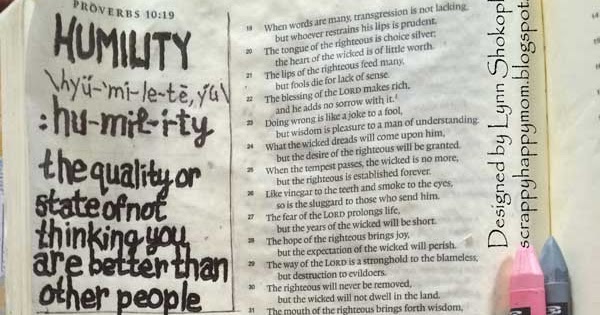 PROVERBS 10:19
HUMILITY
\hyü-'mi-le-tē, yü\
: hu-mil-i-ty
the quality or
state of not
thinking you
are better than
other people
19 When words are many, transgression is not lacking,
but whoever restrains his lips is prudent.
20 The tongue of the righteous is choice silver;
the heart of the wicked is of little worth.
21 The lips of the righteous feed many,
but fools die for lack of sense.
22 The blessing of the LORD makes rich,
and he adds no sorrow with it.
23 Doing wrong is like a joke to a fool,
but wisdom is pleasure to a man of understanding.
24 What the wicked dreads will come upon him,
but the desire of the righteous will be granted.
25 When the tempest passes, the wicked is no more,
but the righteous is established forever.
26 Like vinegar to the teeth and smoke to the eyes,
so is the sluggard to those who send him.
27 The fear of the LORD prolongs life,
but the years of the wicked will be short.
28 The hope of the righteous brings joy,
but the expectation of the wicked will perish.
29 The way of the LORD is a stronghold to the blameless,
but destruction to evildoers.
30 The righteous will never be removed,
but the wicked will not dwell in the land.
31 The mouth of the righteous brings forth wisdom,
Designed by Lynn
scrappyhappymom.blogspot.